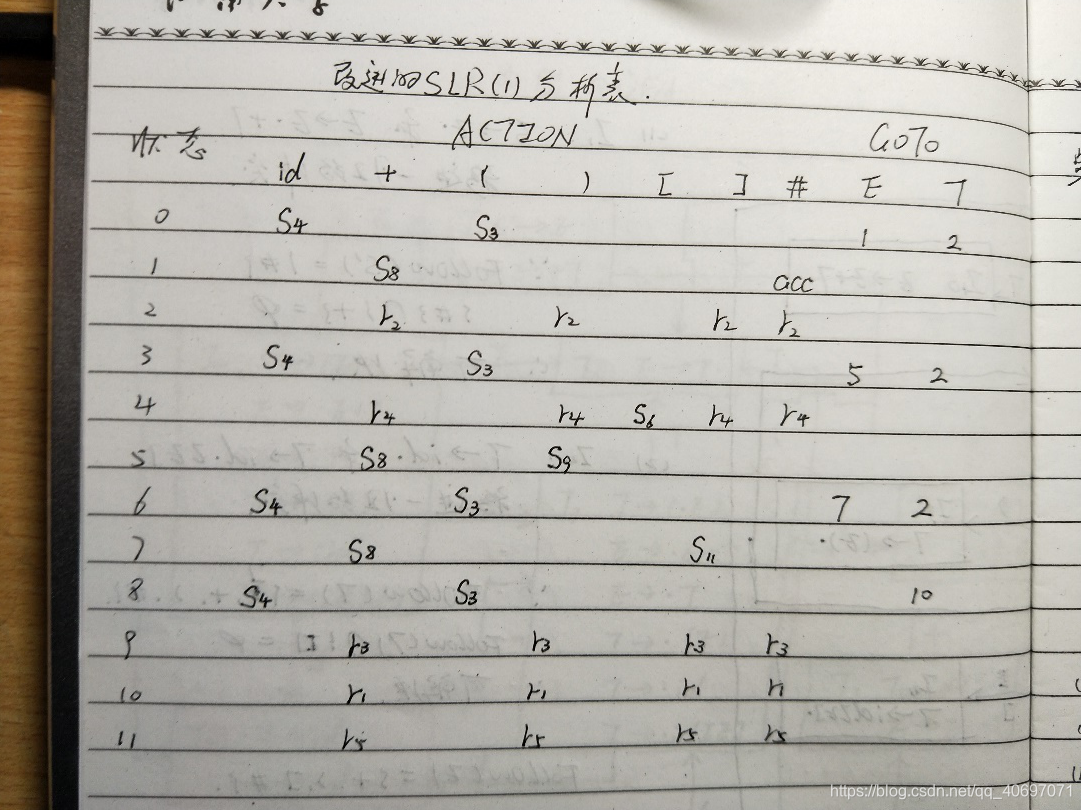 改进的SLR(1)分析表.
状态 ACTION GOTO
id + ( ) [ ] # E T
0 S4 S3 1 2
1 S8 acc
2 r2 r2 r2 r2
3 S4 S3 5 2
4 r4 r4 S6 r4 r4
5 S8 S9
6 S4 S3 7 2
7 S8 S11
8 S4 S3 10
9 r3 r3 r3 r3
10 r1 r1 r1 r1
11 r5 r5 r5 r5
https://blog.csdn.net/qq_40697071